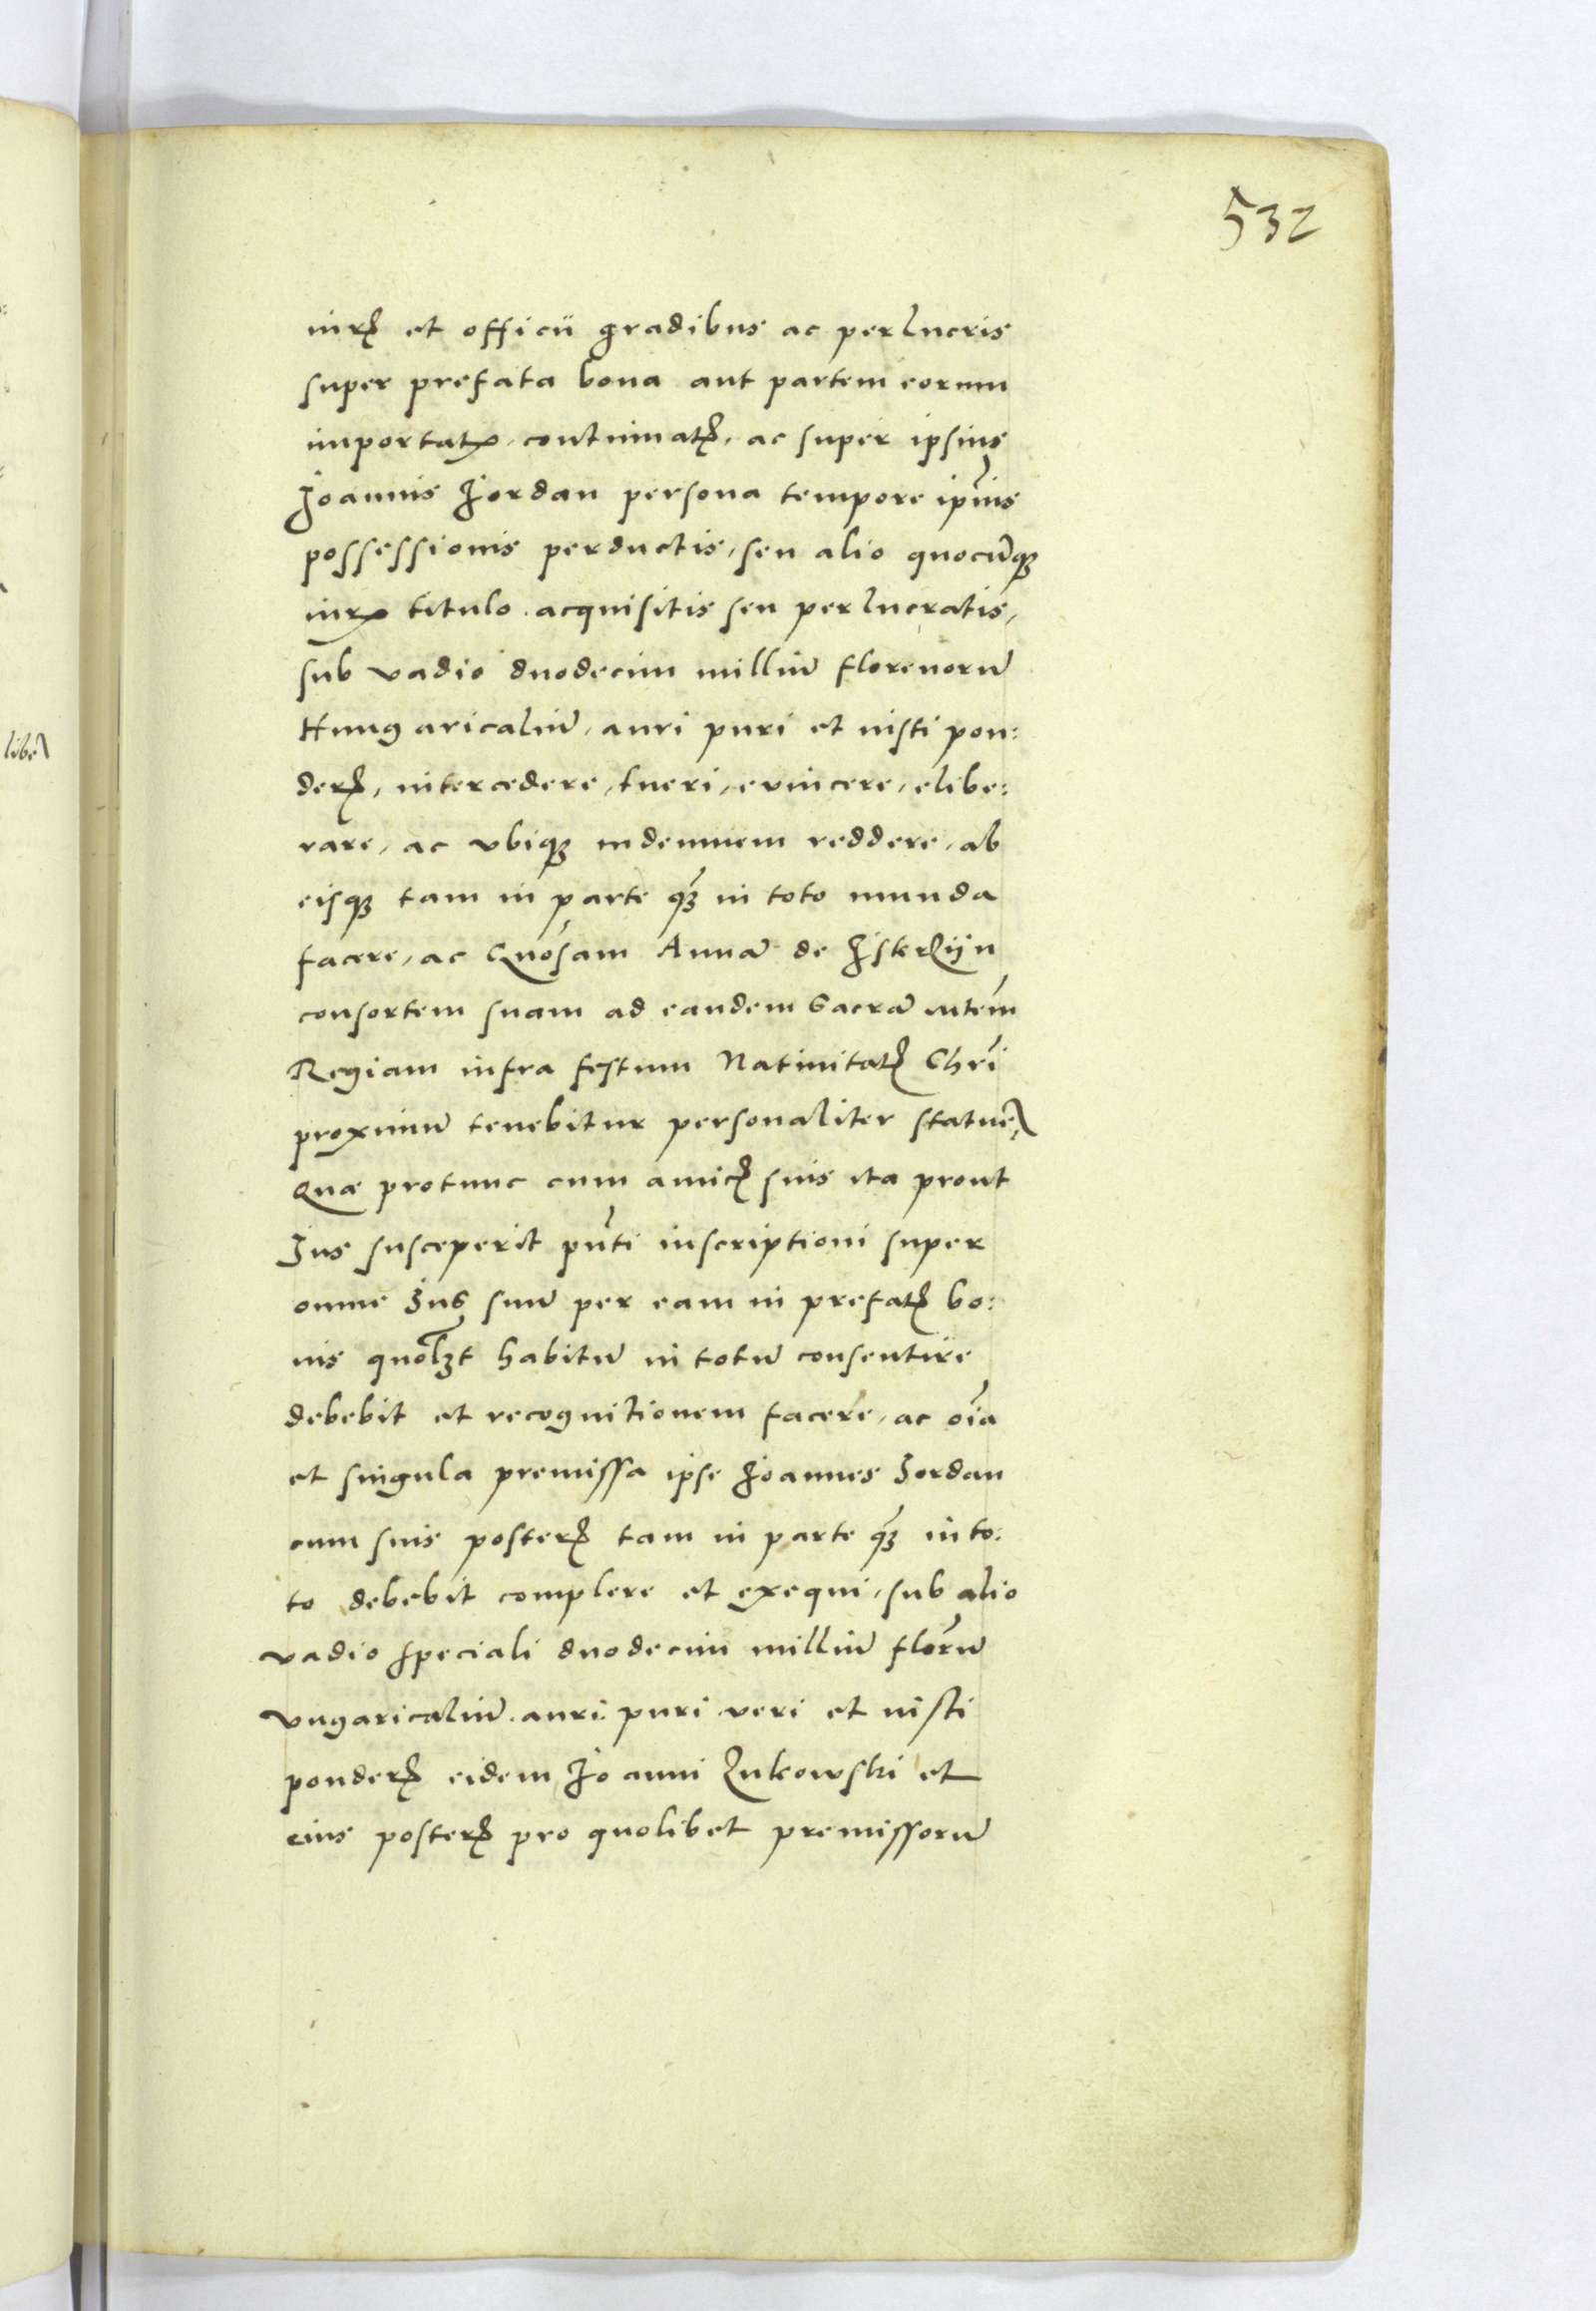 532
iurꝭ et officii gradibus ac perlucris
super prefata bona aut partem eorum
importatꝭ, continuatꝭ, ac super ipsius
Joannis Jordan persona tempore ipsius
possessionis perductis, seu alio quocunqꝫ
iurꝭ titulo acquisitis seu perlucratis,
sub vadio duodecim milliū florenorū
Hungaricaliū, auri puri et iusti pon:
derꝭ, intercedere, tueri, evincere, elibe:
rare, ac vbiqꝫ indemnem reddere, ab
eisqꝫ tam in parte qꝫ in toto munda
facere, ac Gnosam Annā de
consortem suam ad eandem Sacrā Mtem
Regiam infra festum Natiuitatꝭ Chri
proximū tenebitur personaliter statuē
Quæ protunc cum amicꝭ suis ita prout
Jus susceperit pnti inscriptioni super
omne Jus suū per eam in prefatꝭ bo:
nis quolꝫt habitū in totū consentire
debebit et recognitionem facere, ac oīa
et singula premissa ipse Joannes Jordan
cum suis posterꝭ tam in parte qꝫ in to:
to debebit complere et exequi, sub alio
vadio speciali duodecim milliū florū
vngaricaliū auri puri veri et iusti
ponderꝭ eidem Joanni Lukowski et
eius posterꝭ pro quolibet premissorū